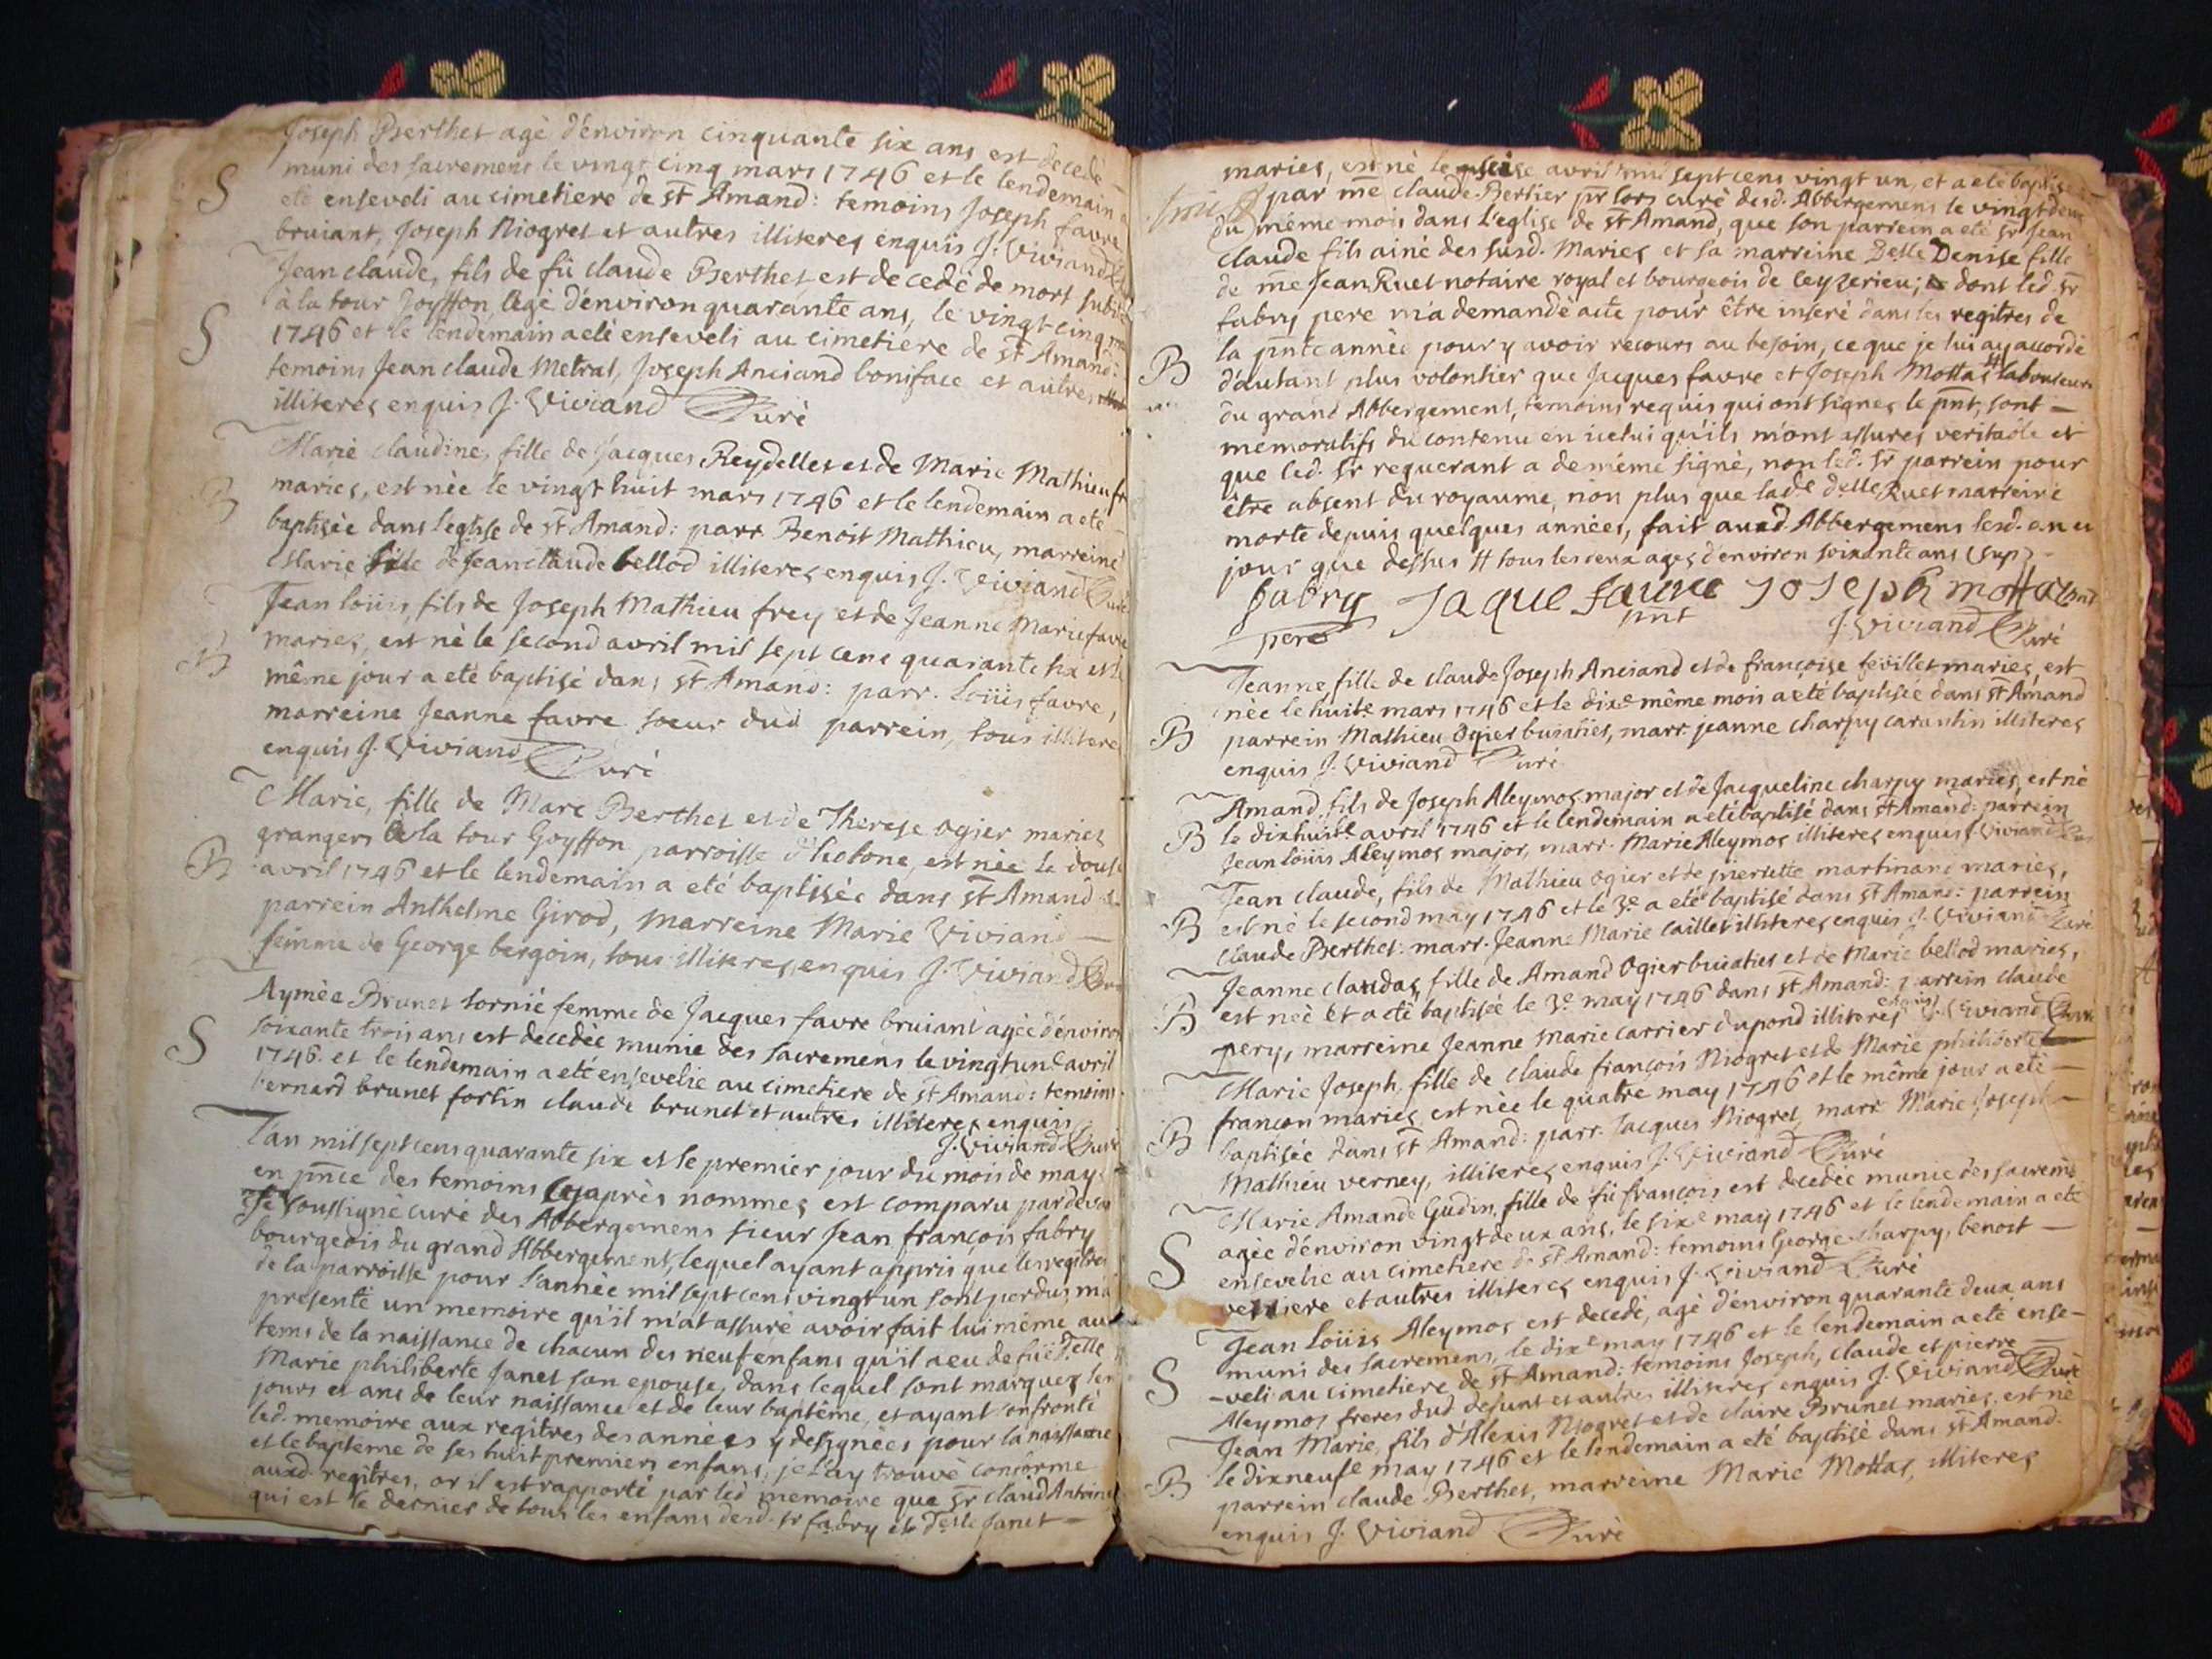 Joseph Berthet agè d'environ cinquante six ans est decedè
S muni des sacremens le vingt cinq mars 1746 et le lendemain a
eté enseveli au cimetiere de st Amand: temoins Joseph favre
bruiant, Joseph Niogret et autres illiteres enquis J. Viviand
Jean claude, fils de fü claude Berthet est decedè de mort subite
à la tour Goyffon, agè d'environ quarante ans, le vingt cinq
S 1746 et le lendemain a eté enseveli au cimetiere de st Amand:
temoins Jean claude Metral, Joseph Anciand boniface et autres
illiteres enquis J. Viviand Curè
Marie claudine, fille de Jacques Reydellet et de Marie Mathieu
B mariès, est nèe le vingt huit mars 1746 et le lendemain a eté
baptisèe dans l'eglise de st Amand: parr Benoit Mathieu, marreine
Marie fille de Jean claude bellod illiteres enquis J. Viviand Curè
Jean loüis, fils de Joseph Mathieu frey et de Jeanne Marie favre
B mariès, est nè le second avril mil sept cens quarante six et le
même jour a eté baptisè dans st Amand: parr. Loüis favre,
marreine Jeanne favre soeur dud parrein, tous illiteres
enquis J. Viviand Curè
Marie, fille de Marc Berthet et de Therese ogier mariès
grangers à la tour Goyffon parroisse d'hotone, est nèe le douse
B avril 1746 et le lendemain a eté baptisèe dans st Amand
parrein Anthelme Girod, marreine Marie Viviand —
femme de George bergoin, tous illiteres enquis J. Viviand Curè
Aymèe Brunet tornié femme de Jacques favre bruiant agèe d'environ
S soixante trois ans est decedèe munie des sacremens le vingt un avril
1746. et le lendemain a eté ensevelie au cimetiere de st Amand: temoins
bernard brunet fortin claude brunet et autres illiteres enquis
J. Viviand Curè
L'an mil sept cens quarante six et le premier jour du mois de may
en pnce des temoins cyaprès nommès est comparu pardevant
Je soussignè curè des Abbergemens sieur Jean françois fabry
bourgeois du grand Abbergement, lequel ayant appris que les regitres
de la parroisse pour l'annèe mil sept cens vingt un sont perdus, m'a
presenté un memoire qu'il m'a assuré avoir fait lui même au
tems de la naissance de chacun des neuf enfans qu'il a eu de füe Delle
Marie philiberte Janet son epouse, dans lequel sont marquès les
jours et ans de leur naissance et de leur baptême, et ayant confronté
led. memoire aux regitres des annèes y designèes pour la naissance
et le baptême de ses huit premiers enfans, je l'ay trouvè conforme
auxd regitres, or il est rapporté par led memoire que Sr claud Antoine
qui est le dernier de tous les enfans desd. sr fabry et delle Janet —
mariès, est nè le seise avril mil sept cens vingt un, et a eté baptisè
par me claude Bertier pr lors curè desd. Abbergemens le vingt deux
du même mois dans l'eglise de st Amand, que son parrein a eté Sr Jean
claude fils ainè des susd. Mariès et sa marreine Delle Denise fille
de me Jean Ruet notaire royal et bourgeois de ceyzerieu; dont led. Sr
fabry pere m'a demandè acte pour être inserè dans les regitres de
la pnte annèe pour y avoir recours au besoin, ce que je lui ay accordè
B d'autant plus volontier que Jacques favre et Joseph Mottas # laboureurs
du grand Abbergement, temoins requis qui ont signès le pnt, sont —
memoratifs du contenu en icelui qu'ils m'ont assurès veritable et
que led. Sr requerant a de même signè, non led. Sr parrein pour
être absent du royaume, non plus que lade delle Ruet marreine
morte depuis quelques annèes, fait auxd Abbergemens lesd. an et
jour que dessus # tous les deux agès d'environ soixante ans
fabry Jaque favre Joseph mottaz
pere pnt J. Viviand Curè
Jeanne, fille de claude Joseph Anciand et de françoise feüillet mariès, est
nèe le huite mars 1746 et le dixe même mois a eté baptisèe dans st Amand
B parrein Mathieu Ogier buiaties, marr. jeanne charpy carantin illiteres
enquis J. Viviand Curè
Amand, fils de Joseph Aleymos major et de Jacqueline charpy mariès, est nè
B le dixhuite avril 1746 et le lendemain a eté baptisè dans st Amand: parrein
Jean loüis Aleymos major, marr. Marie Aleymos illiteres enquis J. Viviand Curè
Jean claude, fils de Mathieu ogier et de pierrette martinand mariès,
B est nè le second may 1746 et le 3e a eté baptisè dans st Amand: parrein
claude Berthet: marr. Jeanne Marie caillet illiteres enquis J. Viviand Curè
Jeanne claudas, fille de Amand Ogier buiaties et de Marie bellod mariès,
B est nèe et a eté baptisèe le 3e may 1746 dans st Amand: parrein claude
pery, marreine Jeanne Marie carrier dupond illiteres enquis J. Viviand Curè
Marie Joseph, fille de claude françois Niogret et de Marie philiberte
françon mariès est nèe le quatre may 1746 et le même jour a eté —
B baptisèe dans st Amand: parr. Jacques Niogret, marr Marie Joseph —
Mathieu verney, illiteres enquis J. Viviand Curè
Marie Amande Gudin, fille de fü françois est decedèe munie des sacremens
agèe d'environ vingt deux ans, le sixe may 1746 et le lendemain a eté
S ensevelie au cimetiere de st Amand: temoins George charpy, benoit —
et autres illiteres enquis J. Viviand Curè
Jean Loüis Aleymos est decedè, agè d'environ quarante deux ans
muni des sacremens, le dixe may 1746 et le lendemain a eté ense-
S -veli au cimetiere de st Amand: temoins Joseph, claude et pierre —
Aleymos freres dud defunt et autres illiteres enquis J. Viviand Curè
Jean Marie, fils d'Alexis Niogret et de claire Brunet mariès, est nè
B le dixneufe may 1746 et le lendemain a eté baptisè dans st Amand.
parrein claude Berthet, marreine Marie Mottas, illiteres
enquis J. Viviand Curè